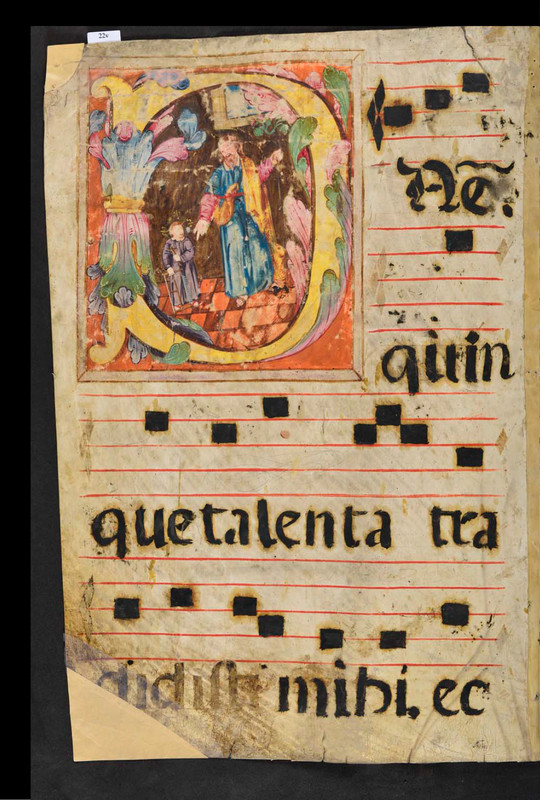 22v
DNē.
quin
quetalenta tra
didisti mihi, ec